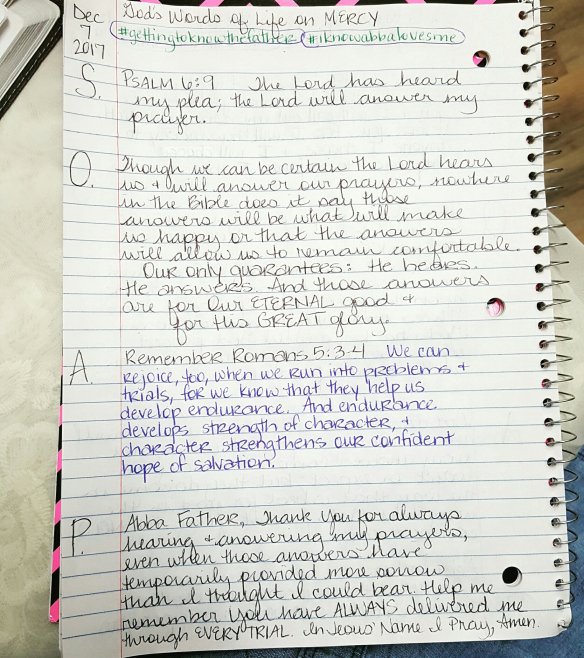 Dec
7
2017
God's Words of Life on MERCY
#gettingtoknowthefather #iknowabbalovesme
S. PSALM 6:9 The Lord has heard
my plea; the Lord will answer my
prayer.
O. Though we can be certain the Lord hears
us + will answer our prayers, nowhere
in the Bible does it say those
answers will be what will make
us happy or that the answers
will allow us to remain comfortable.
Our only guarantees: He hears.
He answers. And those answers
are for Our ETERNAL good +
for His GREAT glory.
A. Remember Romans 5:3-4 We can
rejoice, too, when we run into problems +
trials, for we know that they help us
develop endurance. And endurance
develops strength of character, +
character strengthens our confident
hope of salvation.
P. Abba Father, Thank You for always
hearing + answering my prayers,
even when those answers have
temporarily provided more sorrow
than I thought I could bear. Help me
remember You have ALWAYS delivered me
through EVERY TRIAL. In Jesus' Name I Pray, Amen.